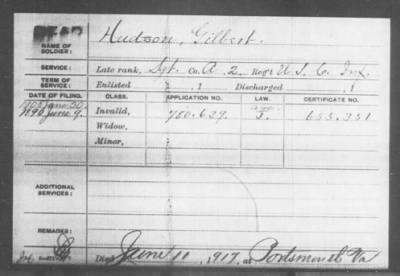 DEAD
NAME OF SOLDIER: Hudson, Gilbert.
SERVICE: Late rank, Sgt. Co. A, 2 Reg't U.S.C. Inf.
TERM OF SERVICE: Enlisted , 1 Discharged , 1
DATE OF FILING. CLASS. APPLICATION NO. LAW. CERTIFICATE NO.
1890 June 9. Invalid, 780.629. J. 655.351
Widow,
Minor,
ADDITIONAL SERVICES:
REMARKS:
Died June 10, 1917, at Portsmouth Va